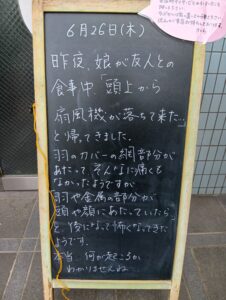 6月26日(木)
昨夜、娘が友人との
食事中「頭上から
扇風機が落ちて来た…」
と帰ってきました。
羽のカバーの網部分が
あたって、そんなに痛くも
なかったようですが
「羽や金属の部分が
頭や顔にあたっていたら」
と、後になって怖くなってきた
ようです。
本当 何が起こるか
わかりませんね